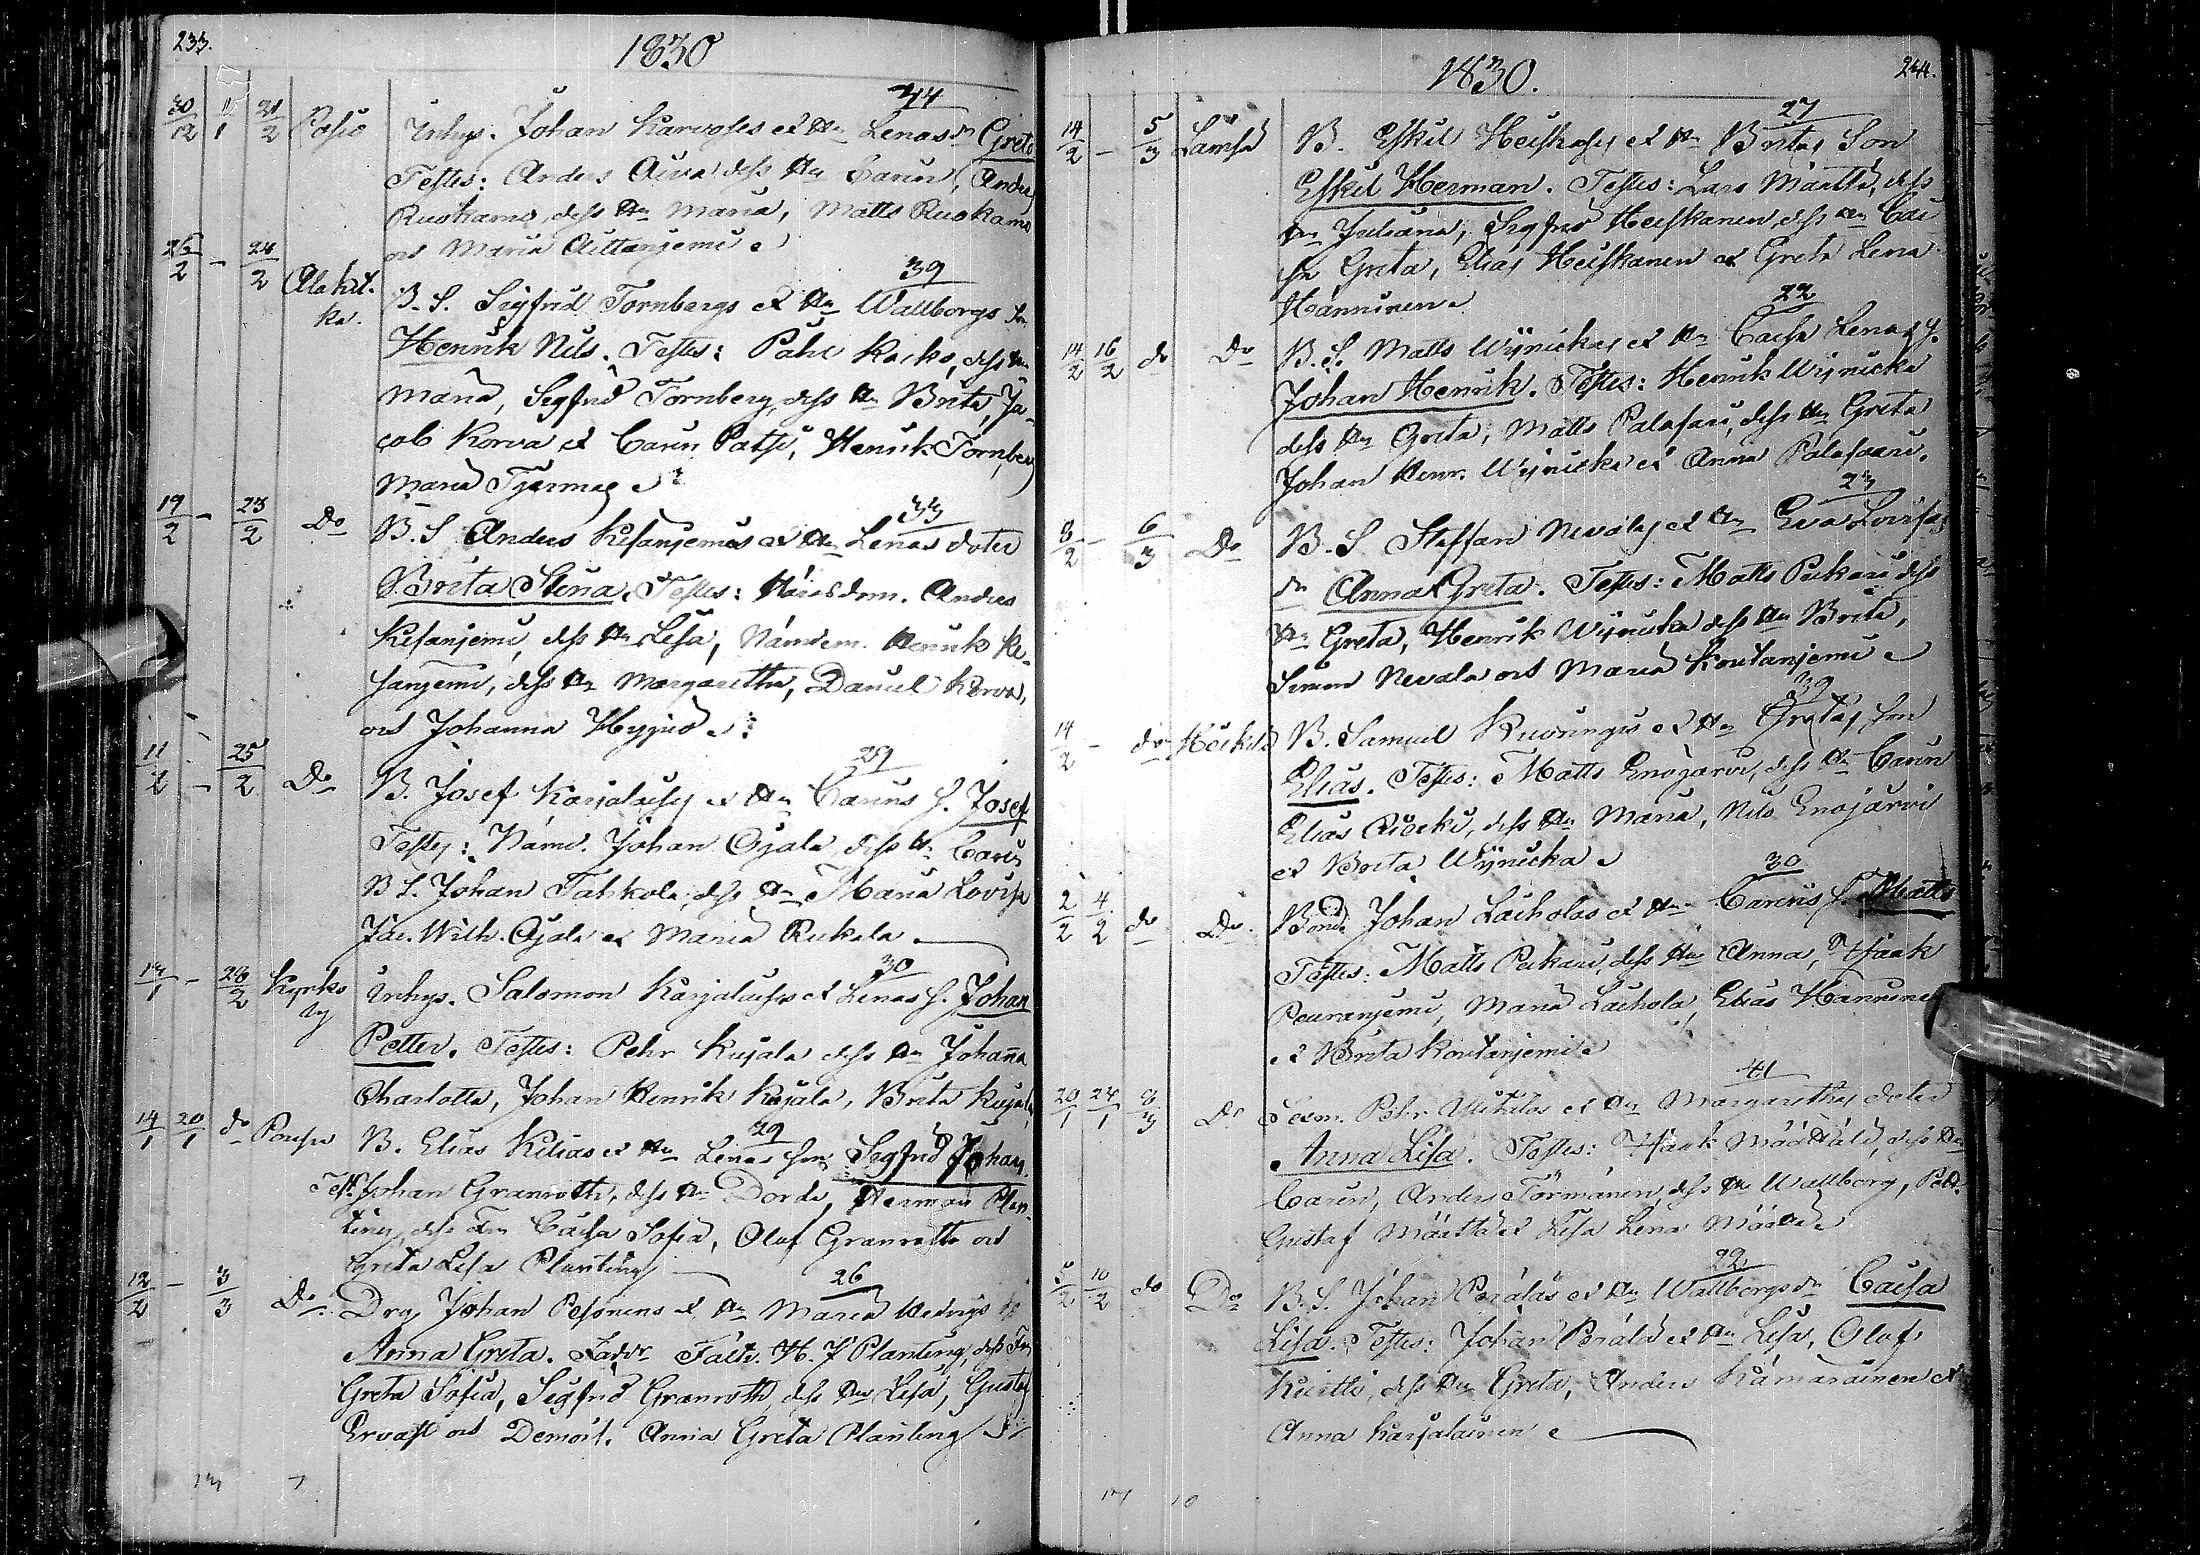 233.
1830
44
30/12 11/1 21/2 Posio Inhys. Johan Karvoses et Hu Lenas dr Greta
Testes: Anders Aiva dess Hu Carin, Anders
Ruokamo, dess Hu Maria, Matts Ruokamo
och Maria Aittanjemi
39
26/2 - 24/2 Alakit-
ka. B. S. Sigfrid Tornbergs et Hu Wallborgs Son
Henrik Nils. Testes: Påhl Karko, dess Hu
Maria, Sigfrid Tornberg, dess Hu Brita, Ja-
cob Korva et Carin Patsi, Henrik Tornberg
Maria Tjerman
33
19/2 - 25/2 Do B. S. Anders Kesanjemis et Hu Lenas doter
Brita Stina. Testes: Häradsdom. Anders
Kesanjemi, dess Hu Lisa, Nämdem. Henrik Ke-
sanjemi, dess Hu Margaretha, Daniel Korva,
och Johanna Hyyjä
29
11/2 - 25/2 Do B. Josef Karjalaises et Hu Carins S. Josef
Testes: Nämd. Johan Ojala dess H. Carin
B S. Johan Tahkola, dess Hu Maria Lovisa
Jac. Wilh. Ojala et Maria Rukala
30
13/1 - 26/2 Kyrko
by Inhys. Salomon Karjalaises et Lenas S. Johan
Petter. Testes: Pehr Kujala dess Hu Johanna
Charlotta, Johan Henrik Kujala, Brita Kujala
29
14/1 20/1 do Pousu B. Elias Kilias et Hu Lenas son Sigfrid Johan
Test. Johan Granroth, dess Hu Dorde, Herman Plan-
ting, dess Fru Caisa Sofia, Olof Granroth och
Greta Lisa Planting
26
12/2 - 3/3 Do Drg Johan Pesonens et Hu Maria Hedvigs dr
Anna Greta. Faddr Fältv. H. J Planting, dess Fru
Greta Sofia, Sigfrid Granroth, dess Hu Lisa, Gustaf
Ervast och Demois. Anna Greta Planting
13 7
244.
1830.
27
14/2 - 5/3 Lämsä B. Eskil Heiskases et Hu Britas Son
Eskil Herman. Testes: Lars Määttä, dess
Hu Juliana, Sigfrid Heiskanen, dess Hu Cai-
sa Greta, Elias Heiskanen et Greta Lena
Hänninen
22
14/2 16/2 do Do B. S. Matts Wÿrickas et Hu Caisa Lenas S.
Johan Henrik. Testes: Henrik Wÿricka
dess Hu Greta, Matts Palosari, dess Hu Greta
Johan Henr. Wÿricka et Anna Palosaari.
23
8/2 - 6/3 Do B. S Staffan Nevalas et Hu Eva Lovisas
dr Anna Greta. Testes: Matts Pukari dess
Hu Greta, Henrik Wÿricka dess Hu Brita,
Simon Nevala och Maria Koutanjemi
39
14/2 - do Heikilä B. Samuel Kuvungis et Hu Gretas son
Elias. Testes: Matts Enojärvi, dess Hu Carin
Elias Riekki, dess Hu Maria, Nils Enojärvi
et Brita Wÿricka
30
2/2 4/2 do Do. Bond. Johan Laiholas et Hu Carins S. Matts
Testes: Matts Pukari, dess Hu Anna, Isaak
Peuranjemi, Maria Laihola, Elias Hänninen
et Brita Koutanjemi
41
20/1 24/1 8/3 Do Sexm. Pehr Ulkilas et Hu Margarethas doter
Anna Lisa. Testes: Isaak Määttälä, dess Hu
Carin, Anders Törmänen, dess Hu Wallborg, Pehr
Gustaf Määttä et Lisa Lena Määttä
22
5/2 10/2 do Do B. S. Johan Peräläs et Hu Wallborgs dr Caisa
Lisa. Testes: Johan Perälä et Hu Lisa, Olof
Kurtti, dess Hu Greta, Anders Kämäräinen et
Anna Karjalainen
17 10